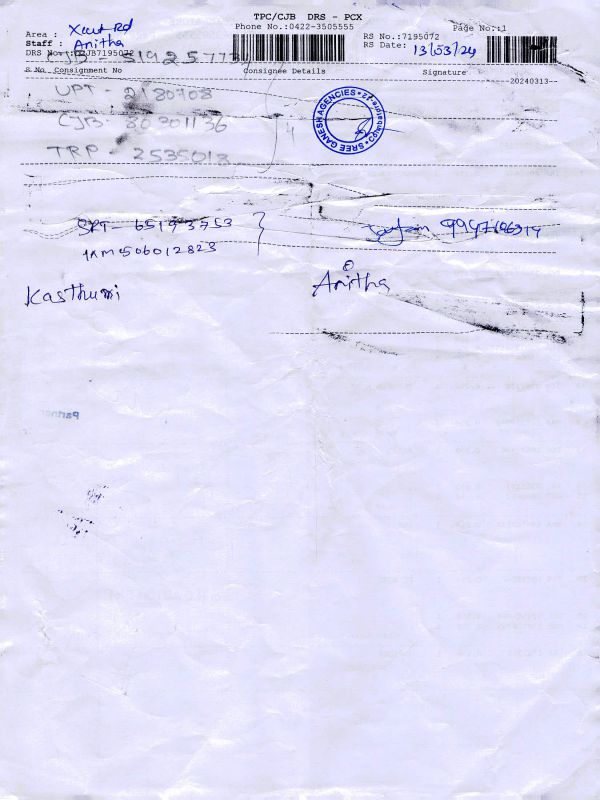 TPC/CJB DRS - PCX
Phone No.:0422-3505555
Page No.:1
Area : Xcut Rd
Staff : Anitha
RS No.:7195072
RS Date: 13/03/24
DRS No.:CJB7195072
CJB -
S No Consignment No Consignee Details Signature
20240313--
UPT - 2180708
CJB - 80301136
TRP - 2535013
SREE GANESH AGENCIES
SPT - 65193753
506012823
Kasthuri
Anitha
Partner